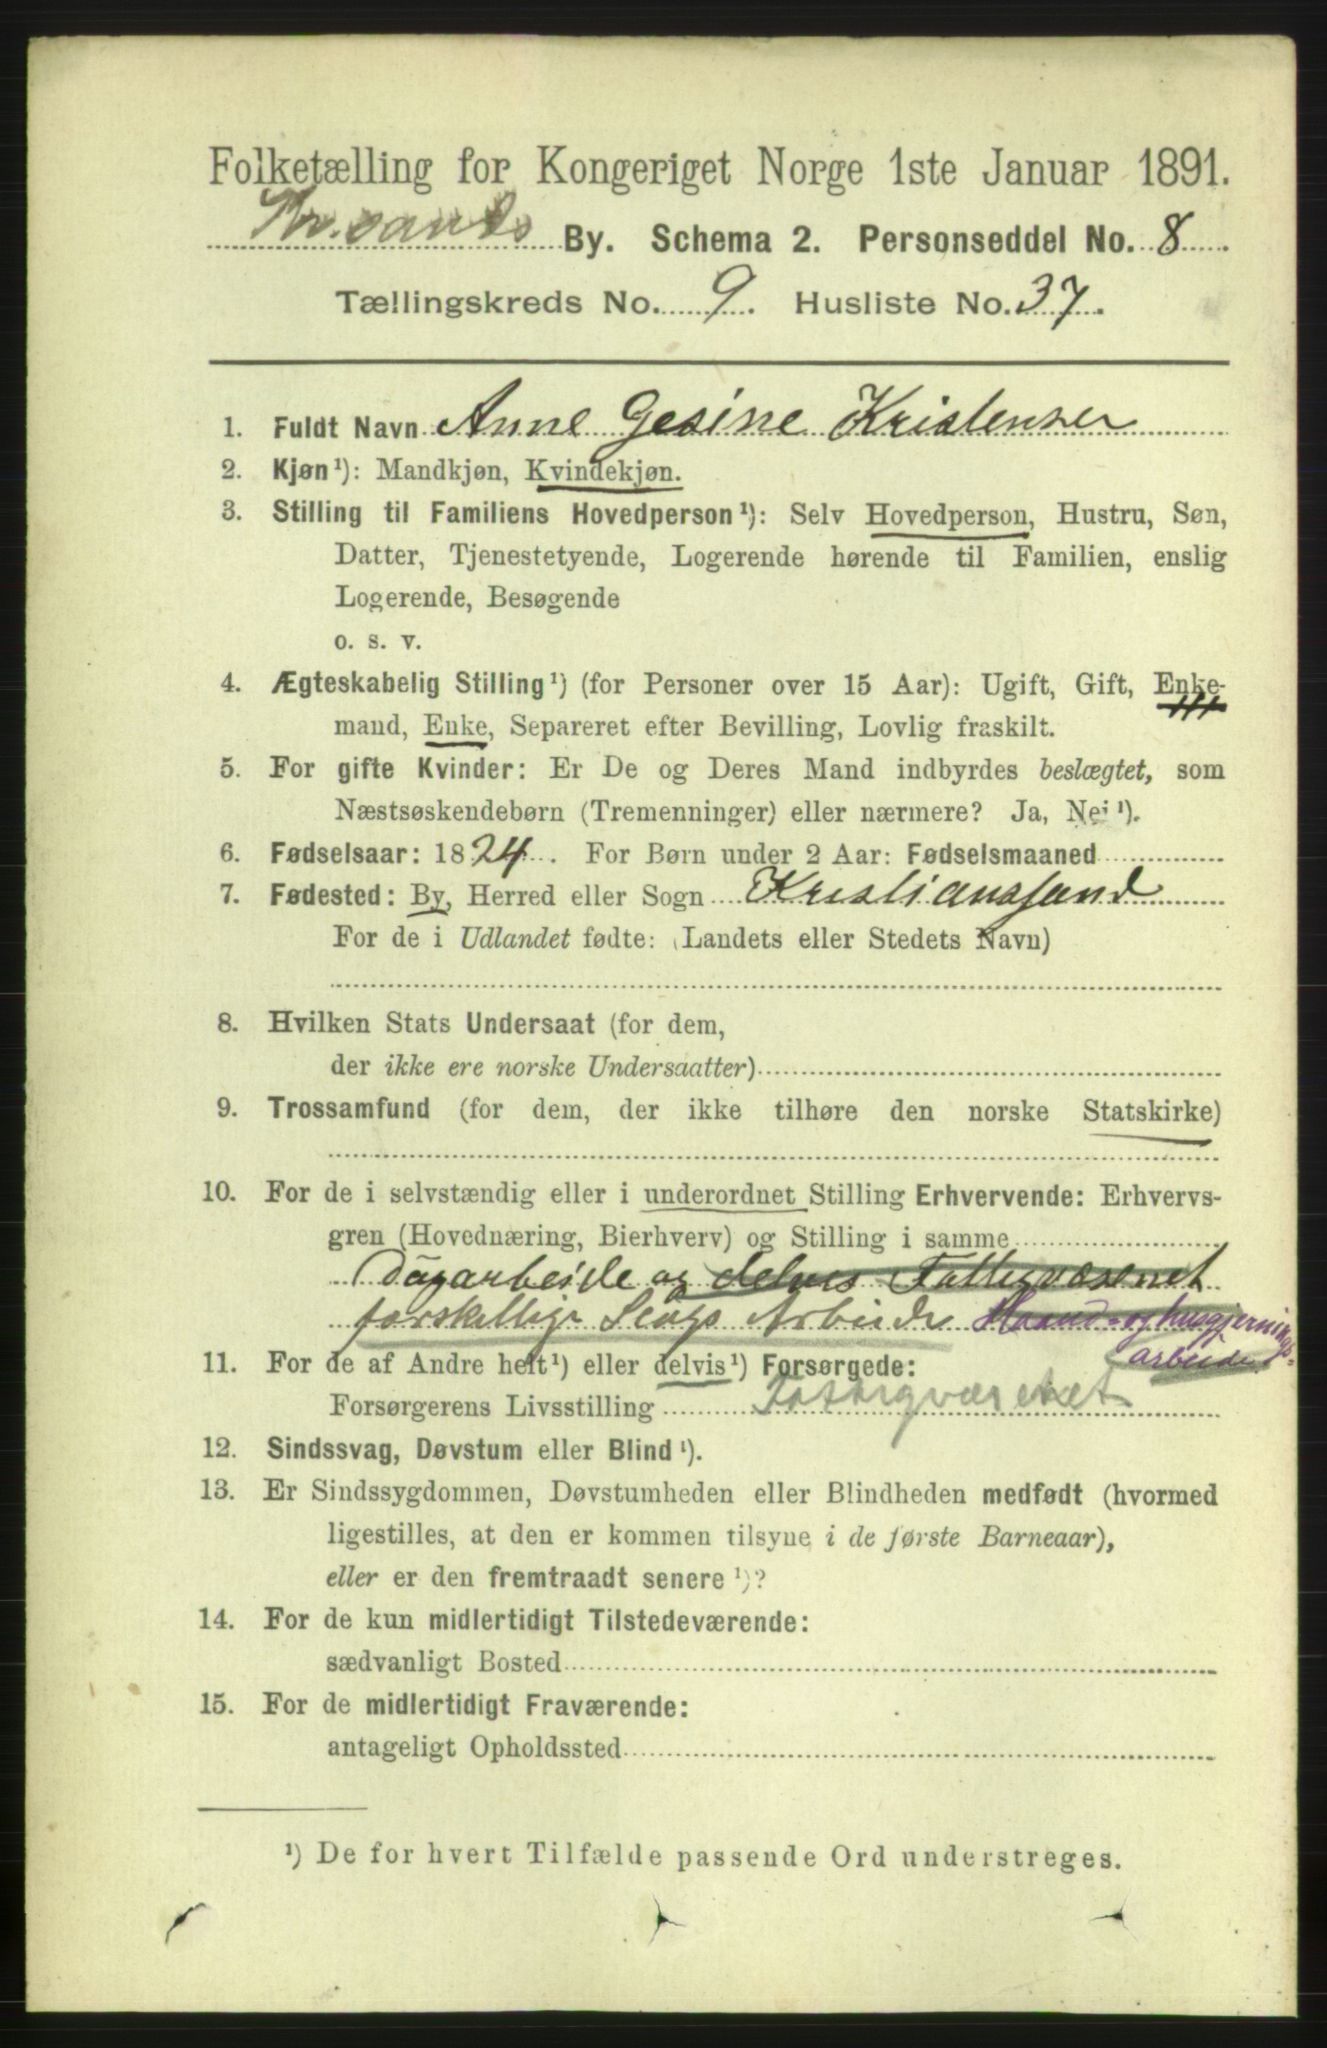 Folketælling for Kongeriget Norge 1ste Januar 1891.
Kr.sands By. Schema 2. Personseddel No. 8
Tællingskreds No. 9. Husliste No. 37.
1. Fuldt Navn Anne Gesine Kristensen
2. Kjøn¹): Mandkjøn, Kvindekjøn.
3. Stilling til Familiens Hovedperson¹): Selv Hovedperson, Hustru, Søn,
Datter, Tjenestetyende, Logerende hørende til Familien, enslig
Logerende, Besøgende
o. s. v.
4. Ægteskabelig Stilling¹) (for Personer over 15 Aar): Ugift, Gift, Enke-
mand, Enke, Separeret efter Bevilling, Lovlig fraskilt.
5. For gifte Kvinder: Er De og Deres Mand indbyrdes beslægtet, som
Næstsøskendebørn (Tremenninger) eller nærmere? Ja, Nei¹).
6. Fødselsaar: 1824. For Børn under 2 Aar: Fødselsmaaned
7. Fødested: By, Herred eller Sogn Kristianssand
For de i Udlandet fødte: (Landets eller Stedets Navn)
8. Hvilken Stats Undersaat (for dem,
der ikke ere norske Undersaatter)
9. Trossamfund (for dem, der ikke tilhøre den norske Statskirke)
10. For de i selvstændig eller i underordnet Stilling Erhvervende: Erhvervs-
gren (Hovednæring, Bierhverv) og Stilling i samme
Dagarbeide og delves Fattigvæsenet
forskellige Slags Arbeide Haand- og husgjernings-
arbeide
11. For de af Andre helt¹) eller delvis¹) Forsørgede:
Forsørgerens Livsstilling Fattigvæsenet
12. Sindssvag, Døvstum eller Blind¹).
13. Er Sindssygdommen, Døvstumheden eller Blindheden medfødt (hvormed
ligestilles, at den er kommen tilsyne i de første Barneaar),
eller er den fremtraadt senere¹)?
14. For de kun midlertidigt Tilstedeværende:
sædvanligt Bosted
15. For de midlertidigt Fraværende:
antageligt Opholdssted
¹) De for hvert Tilfælde passende Ord understreges.